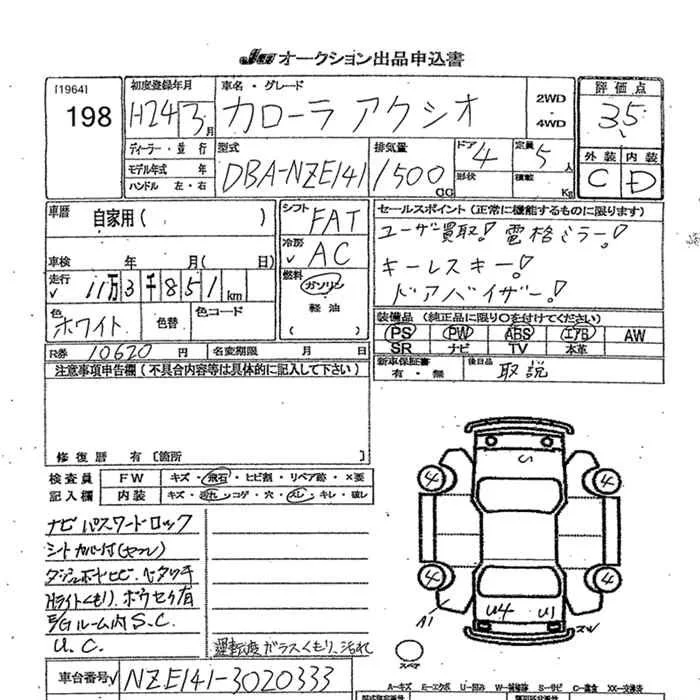 JU オークション出品申込書
[1964]
198
初度登録年月
H24 3月
車名・グレード
カローラ アクシオ
2WD
・
4WD
評価点
3.5
ディーラー・並行
モデル年式 年
ハンドル 左・右
型式
DBA-NZE141
排気量
1500
CC
ドア
4
形状
定員
5人
積載
Kg
外装 内装
C D
車歴
自家用( )
車検 年 月( 日)
走行
11万3千851km
色
ホワイト
色替
色コード
シフト
FAT
冷房
AC
燃料
ガソリン
・
軽油
( )
セールスポイント(正常に機能するものに限ります)
ユーザー買取! 電格ミラー!
キーレスキー!
ドアバイザー!
装備品(純正品に限り○を付けてください)
PS PW ABS エアB AW
SR ナビ TV 本革
新車保証書
有・無
後日品
取説
R券 10620円
名変期限 月 日
注意事項申告欄(不具合内容等は具体的に記入して下さい)
修復歴 有〔箇所
検査員
記入欄
FW キズ・飛石・ヒビ割・リペア跡・×要
内装 キズ・汚れ・コゲ・穴・スレ・キレ・破レ
ナビ パスワードロック
シートカバー付(ヤブレ)
ダッシュボードヒビ、ベタツキ
Hライトくもり、ボウセイ有
E/Gルーム内 S.C.
U.C.
運転席ガラスくもり、汚れ
車台番号 NZE141-3020333
4 4
4 4
S
A1
U4 U1
スペア
A-キズ E-エクボ U-凹み W-補修跡 S-サビ C-腐食 XX-交換済